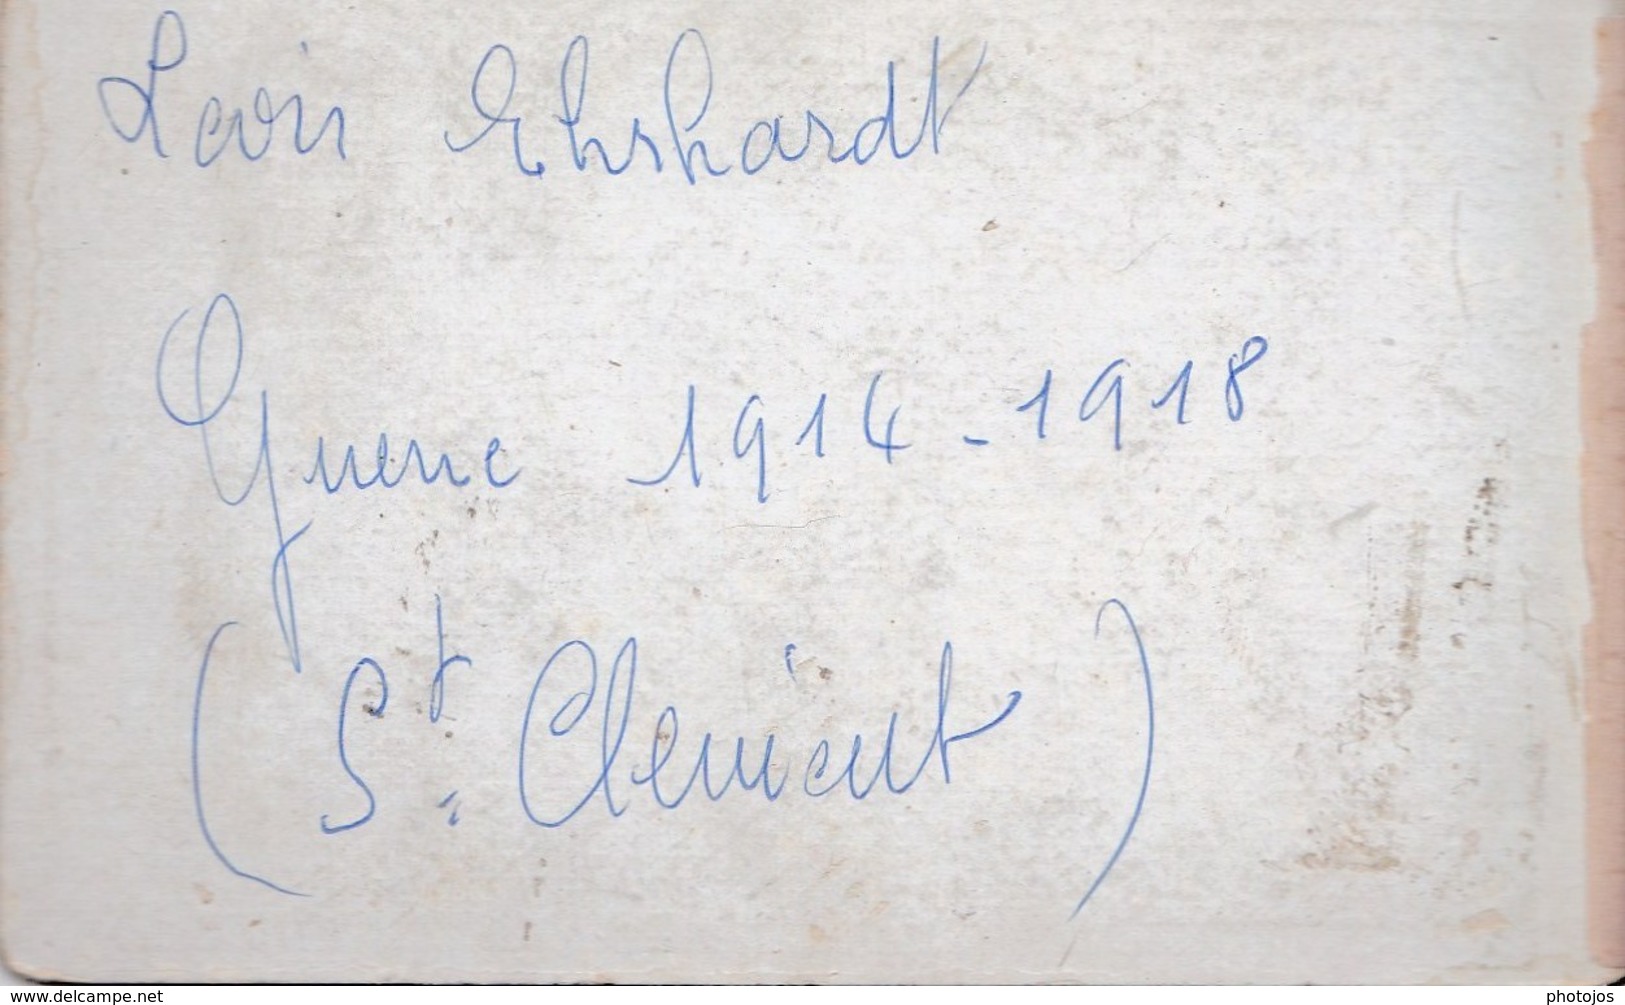 Louis Ehrhardt
Guerre 1914-1918
(St. Clément)
www.delcampe.net
photojos